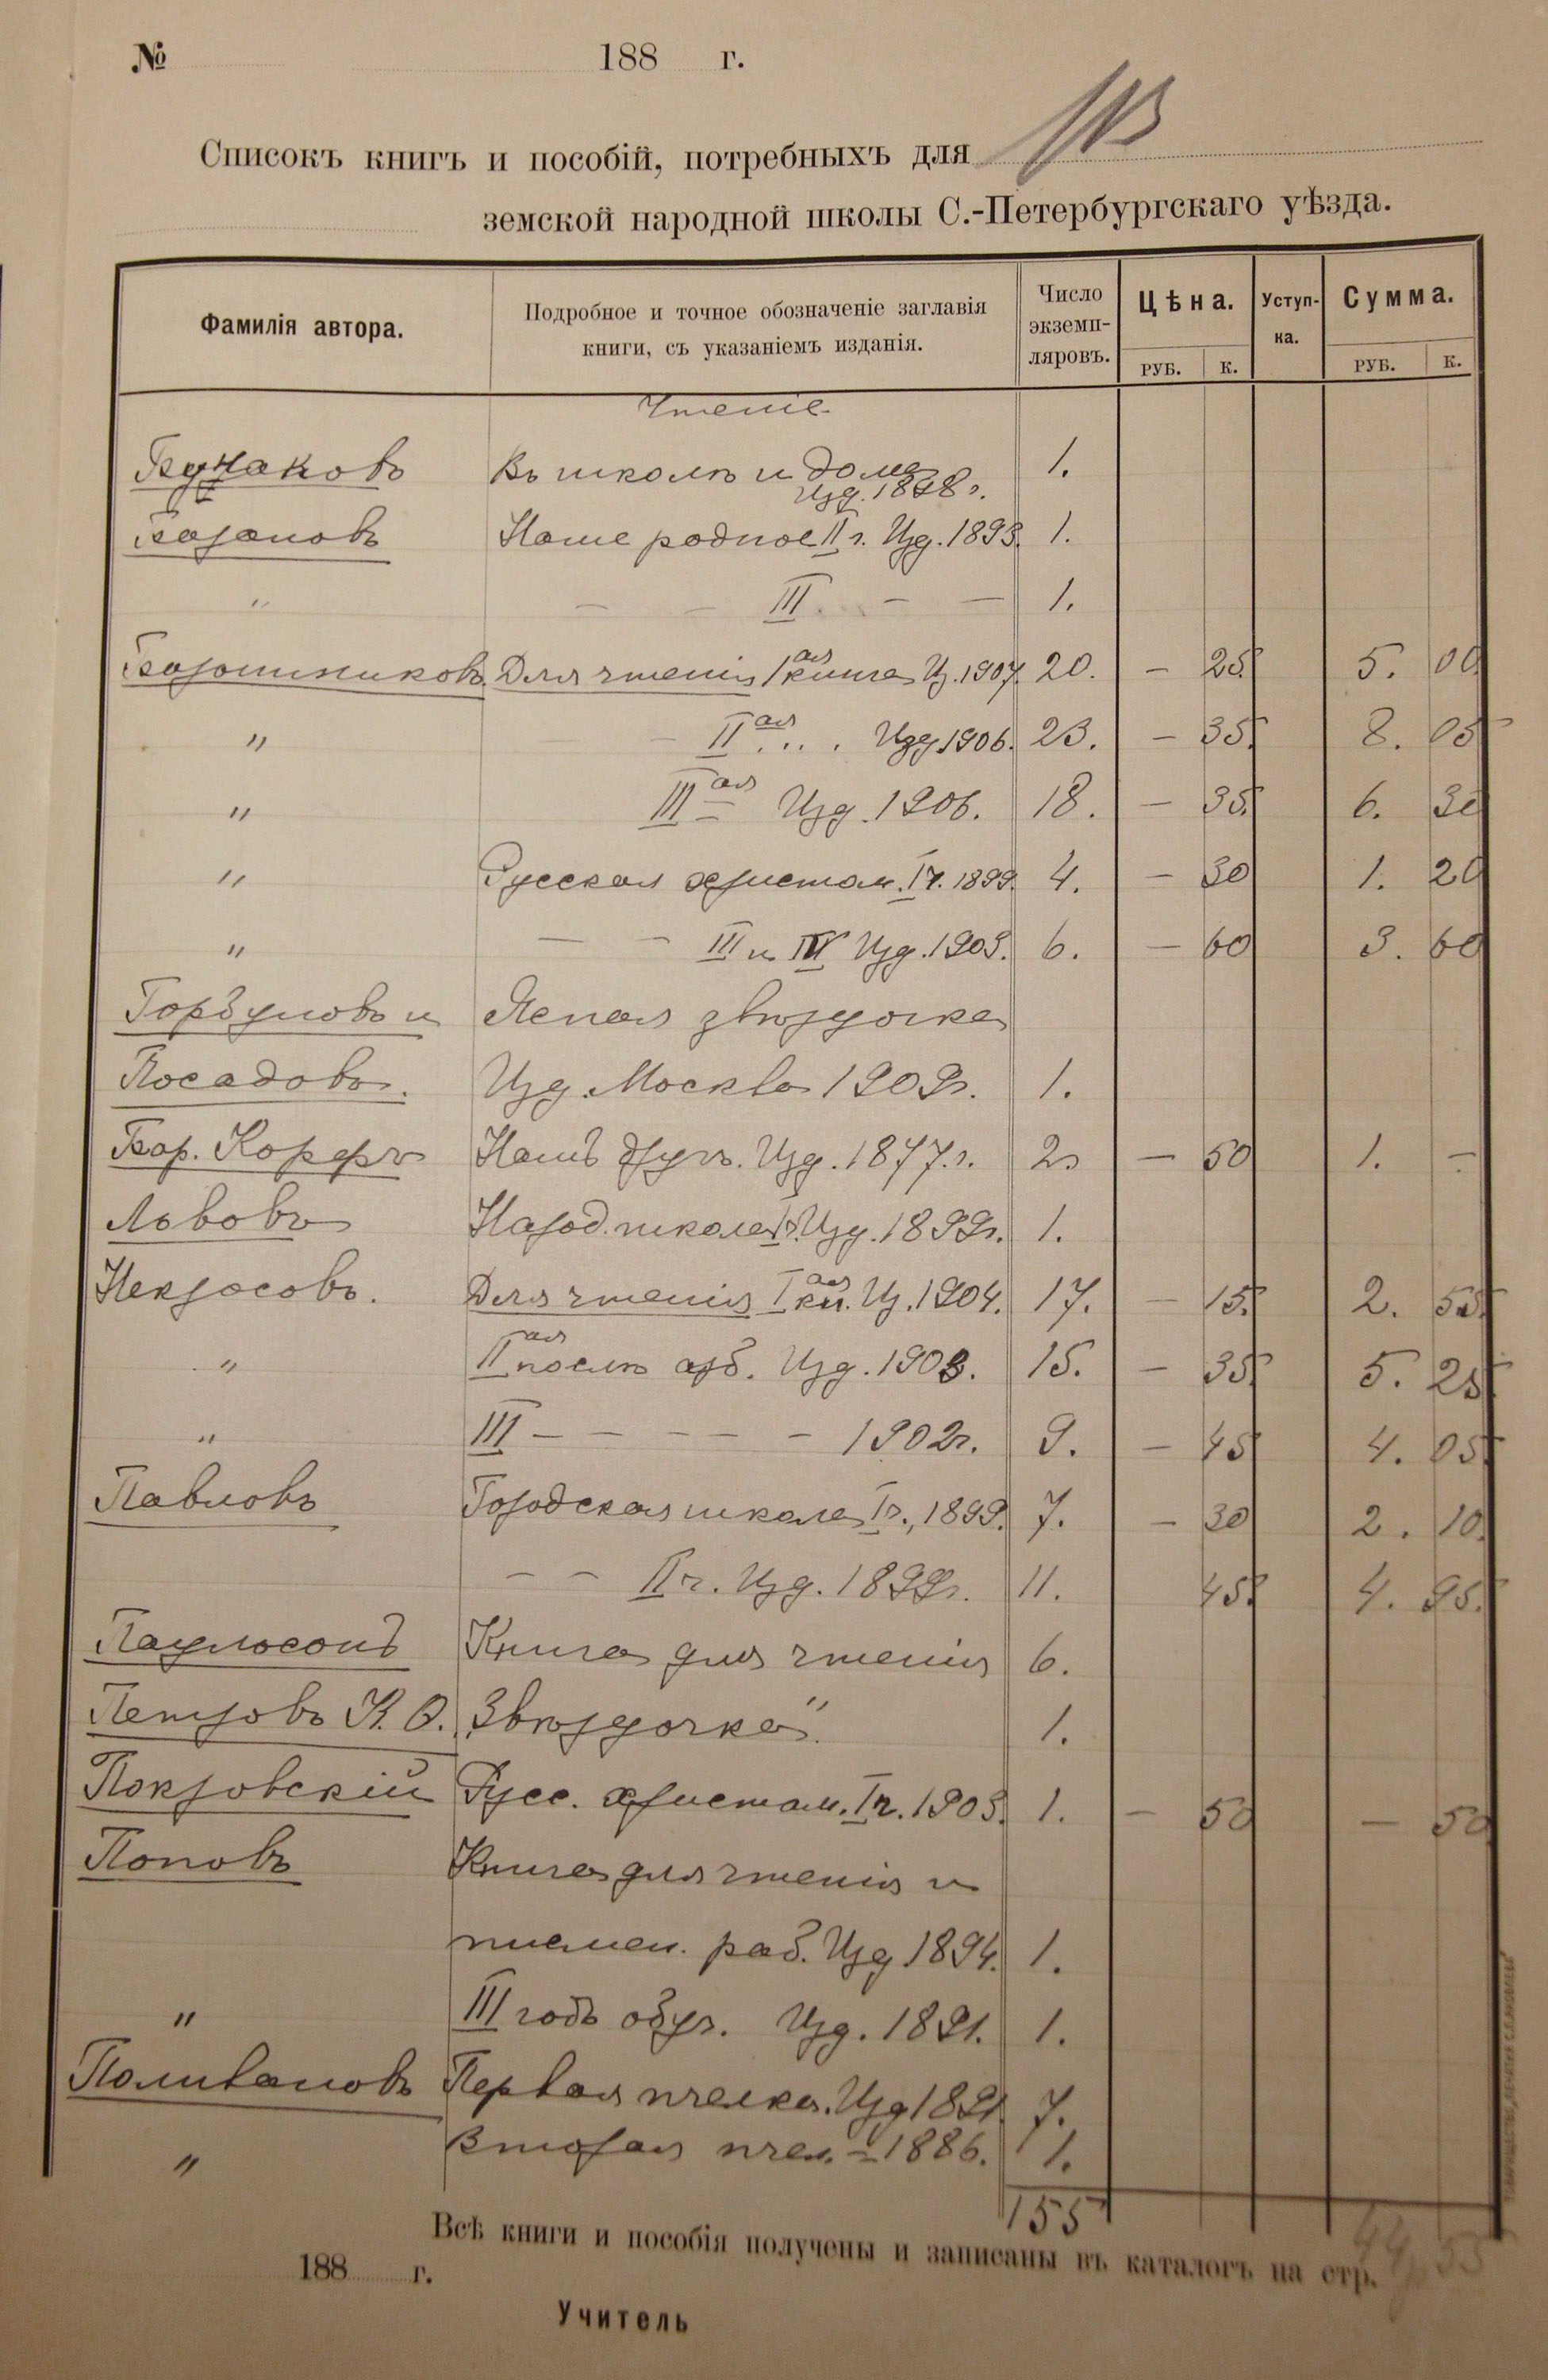 № 188 г.
Списокъ книгъ и пособій, потребныхъ для
земской народной школы С.-Петербургскаго уѣзда.
Фамилія автора. Подробное и точное обозначеніе заглавія книги, съ указаніемъ изданія. Число экземпляровъ. Цѣна. Уступка. Сумма.
РУБ. К. РУБ. К.
Чтеніе
Бунаковъ Въ школѣ и дома 1.
Изд. 1898 г.
Базановъ Наше родное II г. Изд. 1893. 1.
" — — III — — 1.
Для чтенія 1ая книга И. 1907. 20. — 25. 5. 00
" — IIая . . . Изд 1906. 23. — 35. 8. 05
" IIIая — Изд. 1906. 18. — 35. 6. 30
" Русская христом. I ч. 1899. 4. — 30 1. 20
" — — III и IV Изд. 1903. 6. — 60 3. 60
Горбуновъ и Ясная звѣздочка
Посадовъ. Изд. Москва 1909г. 1.
Бар. Корфъ Нашъ другъ. Изд. 1877. г. 2. — 50 1. —
Львовъ Народ. школа I г. Изд. 1899г. 1.
Некрасовъ. Для чтенія Iая кн. И. 1904. 17. — 15. 2. 55.
" IIая послѣ азб. Изд. 1903. 15. — 35. 5. 25
" III — — — — — 1902г. 9. — 45 4. 05.
Павловъ Городская школа I г., 1899. 7. — 30 2. 10.
— — II г. Изд. 1899г. 11. 45. 4. 95.
Паульсонъ Книга для чтенія 6.
Петровъ К. О. „Звѣздочка". 1.
Покровскій Русс. христом. I ч. 1903. 1. — 50 — 50
Поповъ Книга для чтенія и
письмен. раб. Изд 1894. 1.
" III годъ обуч. Изд. 1891. 1.
Поливановъ Первая пчелка. Изд 1891. 7.
" Вторая пчел. — 1886. 1.
155 44р 55
Всѣ книги и пособія получены и записаны въ каталогъ на стр.
188 г.
Учитель